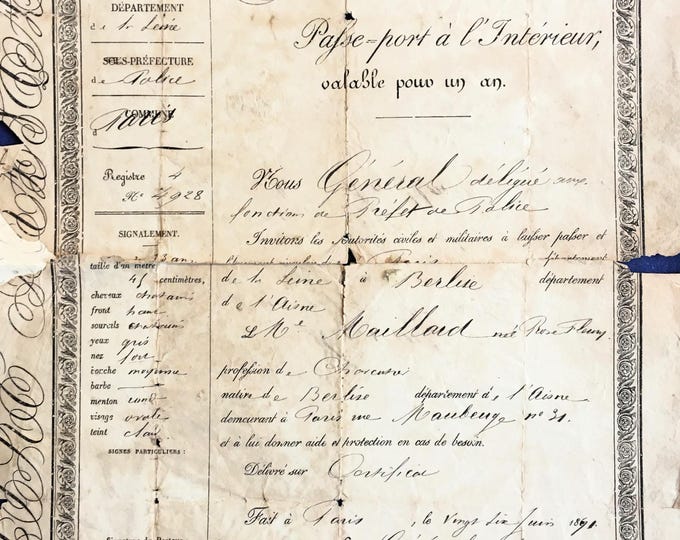 DÉPARTEMENT
de la Seine
SOUS-PRÉFECTURE
de Police
COMMUNE
d Paris
Registre 4
N° 4928
SIGNALEMENT.
taille d'un mètre
45 centimètres,
cheveux chatains
front haut
sourcils chatains
yeux gris
nez fort
bouche moyenne
barbe
menton rond
visage ovale
teint clair
SIGNES PARTICULIERS :
Passe=port à l'Intérieur,
valable pour un an.
Nous Général délégué aux
fonctions de Préfet de Police
Invitons les Autorités civiles et militaires à laisser passer et
département
de la Seine à Berlise département
de l'Aisne
L Me Maillard née Rose Fleury
profession de
native de Berlise département d e l'Aisne
demeurant à Paris rue Maubeuge n° 31.
et à lui donner aide et protection en cas de besoin.
Délivré sur Certificat
Fait à Paris, le vingt six Juin 1871.